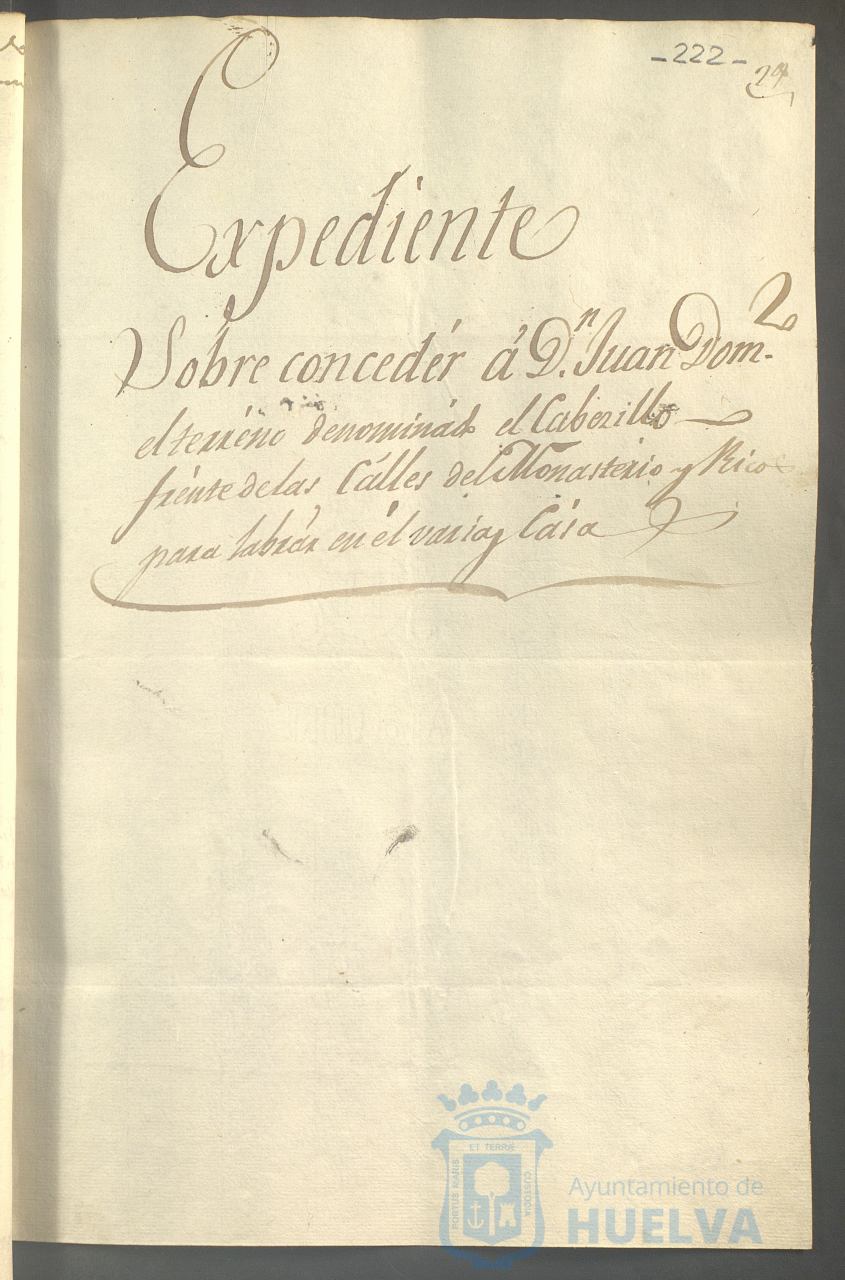 -222-
24
Expediente
Sobre concedér á D.n Juan Dom-z
el terréno denominádo el Cabezillo
frénte de las Cálles del Monasterio y Rico
para labrár en él varias Casa
ET TERRÆ
PORTUS MARIS
CUSTODIA
Ayuntamiento de
HUELVA